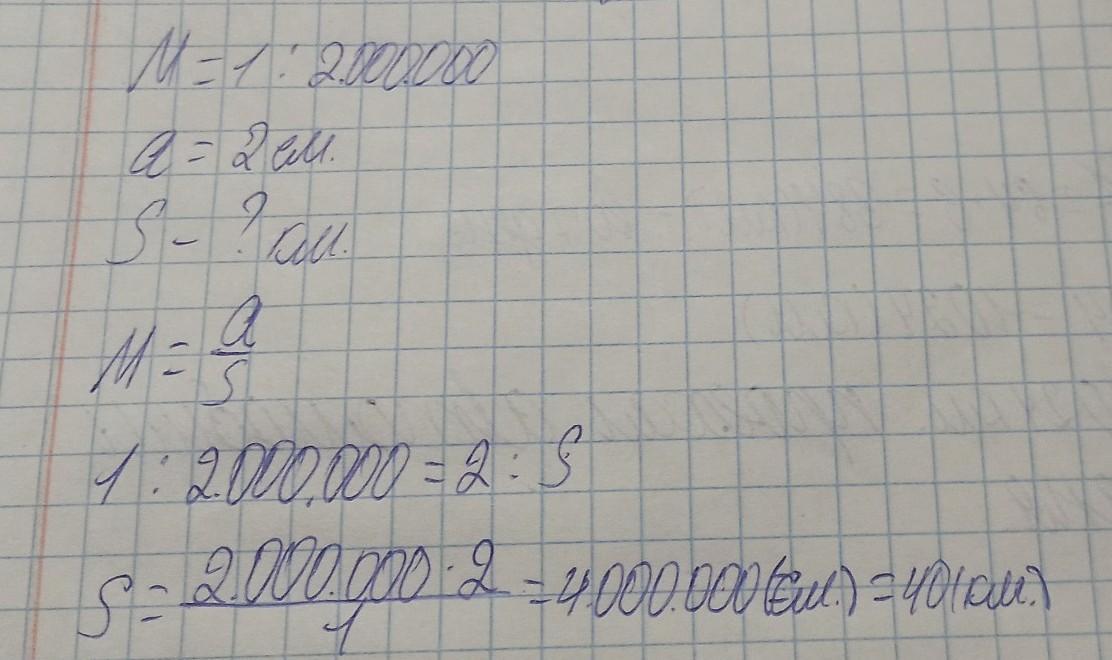 М = 1 : 2.000.000
а = 2 см.
S - ? км.
М = а/S
1 : 2.000.000 = 2 : S
S = 2.000.000 · 2/1 = 4.000.000 (см.) = 40 (км.)